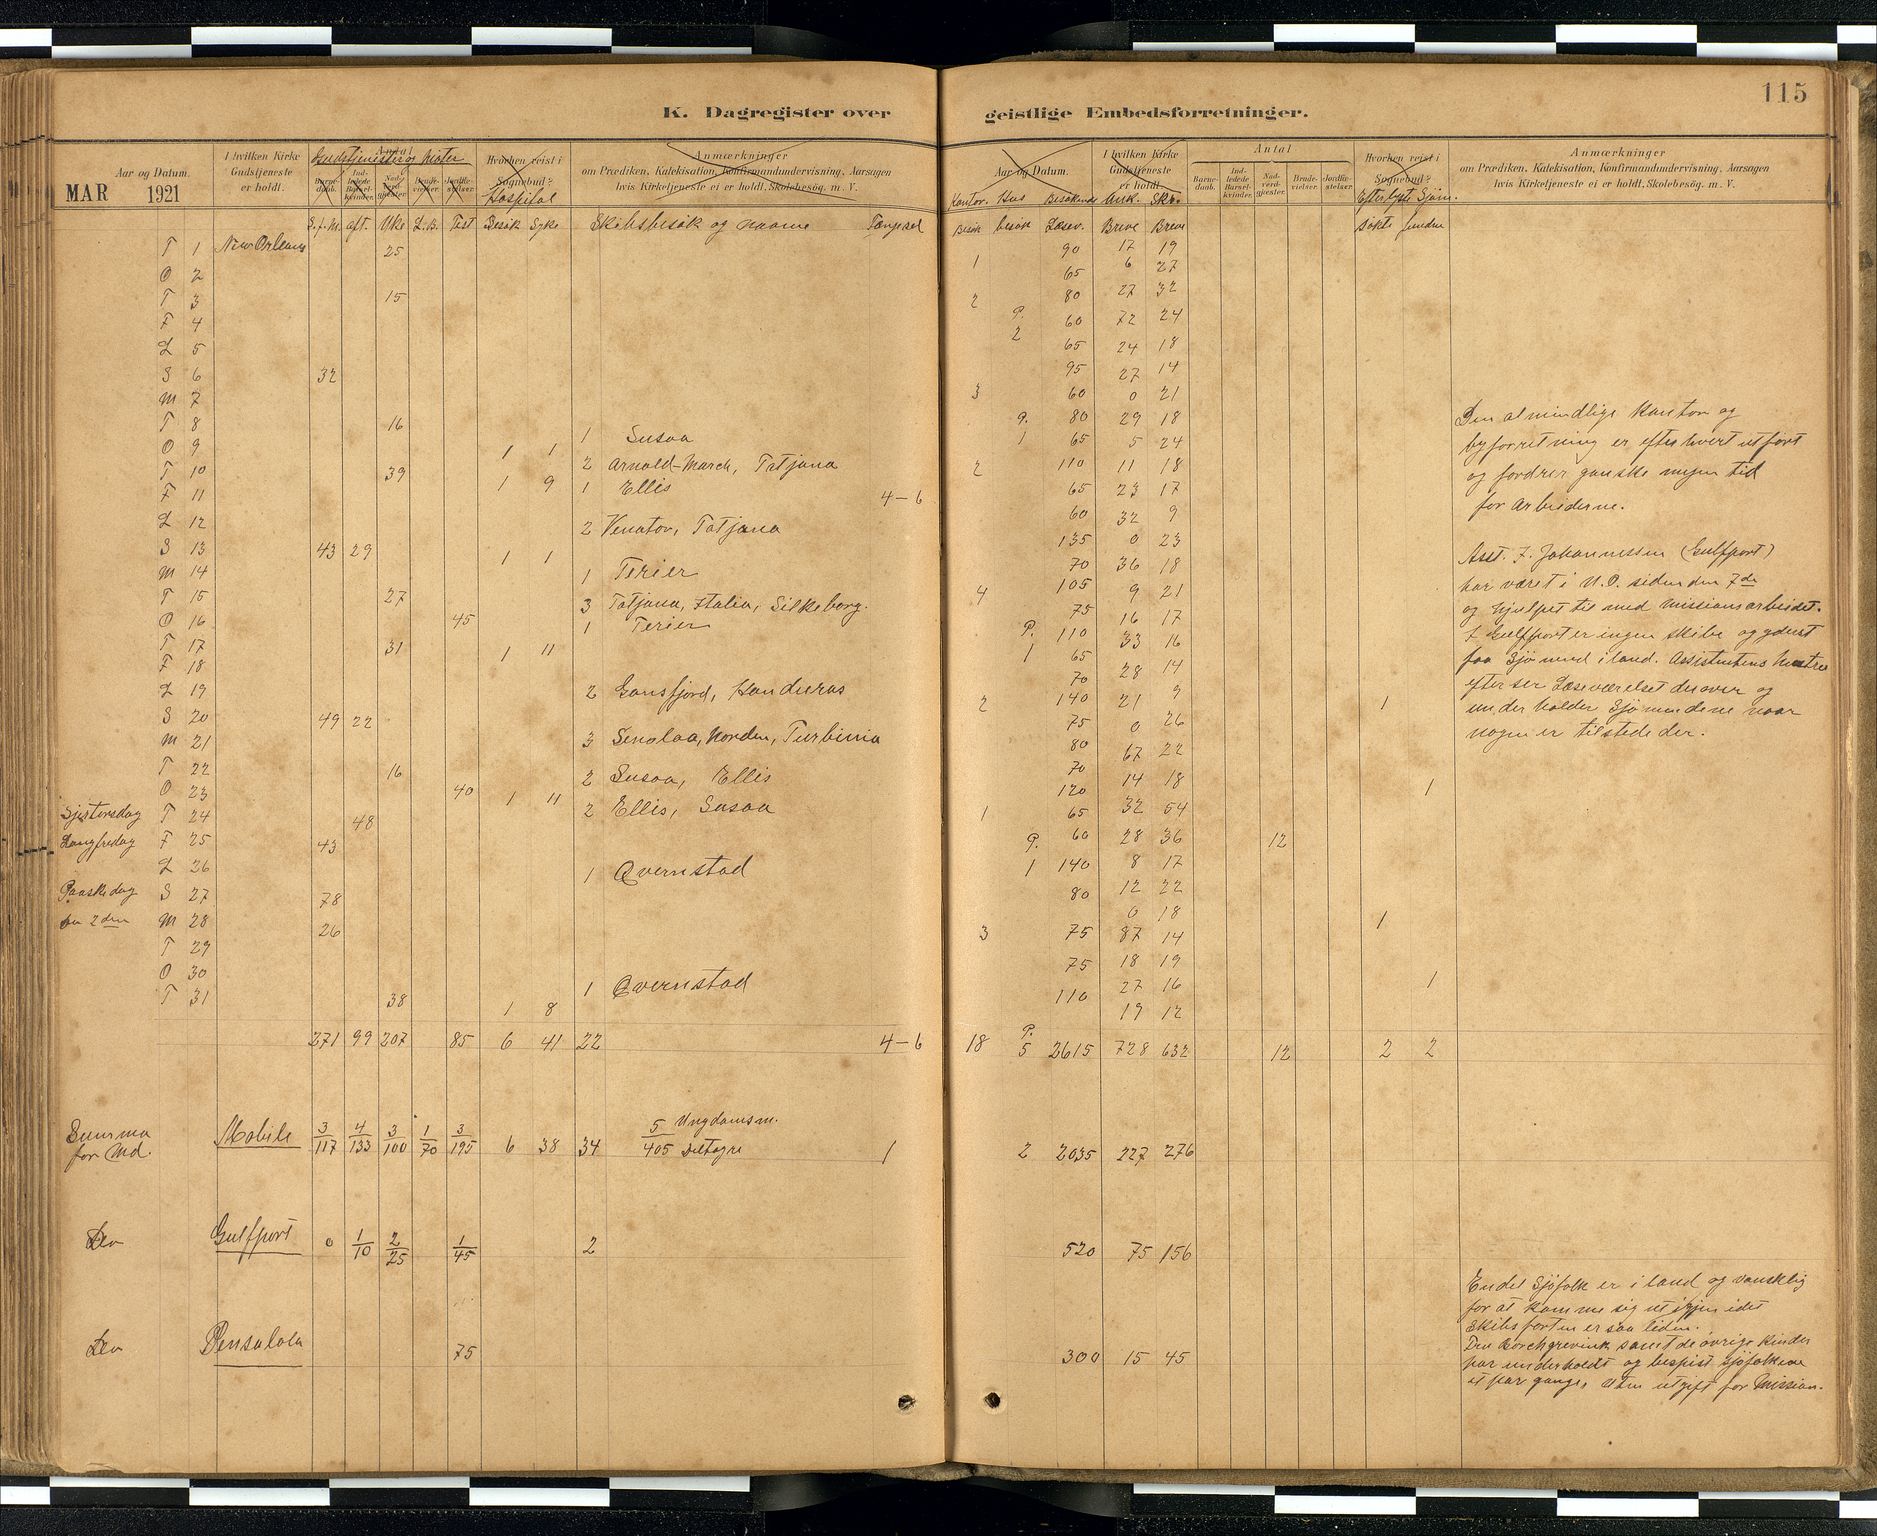 115
K. Dagregister over geistlige Embedsforretninger.
Aar og Datum.
MAR 1921
I hvilken Kirke Gudstjeneste er holdt.
Gudstjenester og Møter
Antal
Barnedaab. Indledede Barselkvinder. Nadvergjester. Brudevielser. Jordfæstelser.
Hvorhen reist i Sognebud?
Hospital
Anmærkninger
om Prædiken, Katekisation, Konfirmandundervisning, Aarsagen
hvis Kirketjeneste ei er holdt, Skolebesøg. m. V.
S.f.M. aft. Uke L.B. Fest Besøk Syke Skibsbesøk og navne Fængsel
Aar og Datum.
I hvilken Kirke Gudstjeneste er holdt.
Antal
Barnedaab. Indledede Barselkvinder. Nadvergjester. Brudevielser. Jordfæstelser.
Hvorhen reist i Sognebud?
Efterlyste Sjøm.
Anmærkninger
om Prædiken, Katekisation, Konfirmandundervisning, Aarsagen
hvis Kirketjeneste ei er holdt, Skolebesøg. m. V.
Kontor. Hus Besøkende Ank. Skr.
Besøk besøk Læsev. Breve Breve søkte fundne
T 1 New Orleans 25
O 2
T 3 15
F 4
L 5
S 6 32
M 7
T 8 16
1 Susaa
O 9 1 1
2 Arnold-March, Tatjana
T 10 39
1 9 1 Ellis
F 11 4-6
L 12 2 Venator, Tatjana
S 13 43 29
1 1
M 14 1 Terier
T 15 27
3 Tatjana, Italia, Silkeborg.
O 16 45 1 Terier
T 17 31 1 11
F 18
L 19 2 Gansfjord, Honduras
S 20 49 22
M 21 3 Senolaa, Norden, Turbinia
T 22 16
2 Susaa, Ellis
O 23 40 1 11
Skjertorsdag T 24 48 2 Ellis, Susaa
Langfredag F 25 43
L 26 1 Qvernstad
Paaskedag S 27 78
do 2den M 28 26
T 29
O 30 1 Qvernstad
T 31 38 1 8
271 99 207 85 6 41 22 4-6
Summa for Md. Mobile 3/117 4/133 3/100 1/70 3/195 6 38 34 5/405 Ungdomsm. Deltagre 1
Do Gulfport 0 1/10 2/25 1/45 2
Do Pensalola 75
90 17 19
1 65 6 27
2 80 27 32
P. 2 60 72 24
65 24 18
95 27 14
3 60 0 21
P. 1 80 29 18
65 5 24
2 110 11 18
65 23 17
60 32 9
135 0 23
70 36 18
4 105 9 21
75 16 17
P. 1 110 33 16
65 28 14
70 21 9
2 140 0 26 1
75 67 22
80 14 18
70 32 54 1
1 120 28 36
65 8 17
P. 1 60 12 22 12
140 0 18
80 87 14 1
3 75 18 19
75 27 16 1
110 19 12
18 P. 5 2615 728 632 12 2 2
2 2035 227 276
520 75 156
300 15 45
Den almindlige Kantor og
byforretning er efterhvert utført
og fordrer ganske megen tid
for Arbeiderne.
Asst. F. Johannessen (Gulfport)
har været i N.O. siden den 7de
og hjulpet til med missionsarbeidet.
I Gulfport er ingen skibe og yderst
faa Sjømend i land. Assistentens Hustru
efterser Læseværelset derover og
underholder Sjømendene naar
nogen er tilstede der.
En del Sjøfolk er i land og vanskelig
for at komme sig ut igjen idet
Skibsfarten er saa liden.
Fru Borchgrevink samt de øvrige kvinder
har underholdt og bespist sjøfolkene
et par gange, uten utgift for Mission.